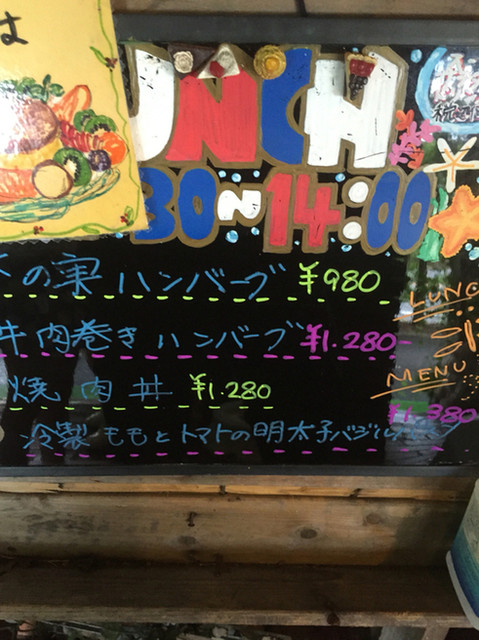 は
UNCH
30~14:00
の実 ハンバーグ ¥980
牛肉巻き ハンバーグ ¥1.280-
焼肉丼 ¥1.280
LUNC
MENU
¥1.380
冷製 ももとトマトの明太子バジル